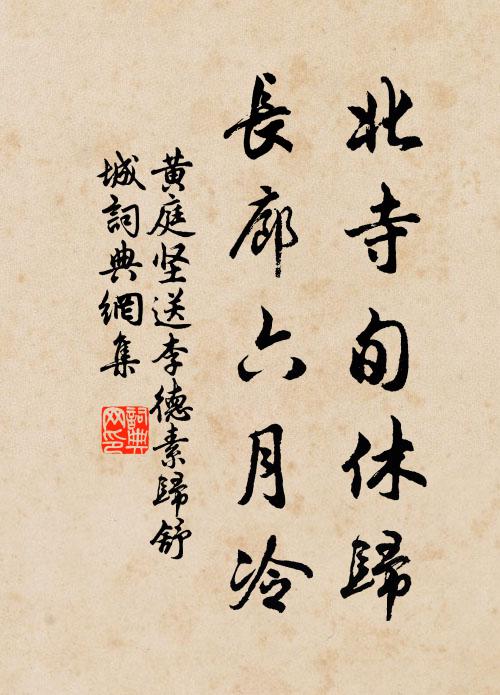 北寺旬休歸
長廊六月冷
黄庭坚送李德素歸舒
城詞典網集
詞典网印